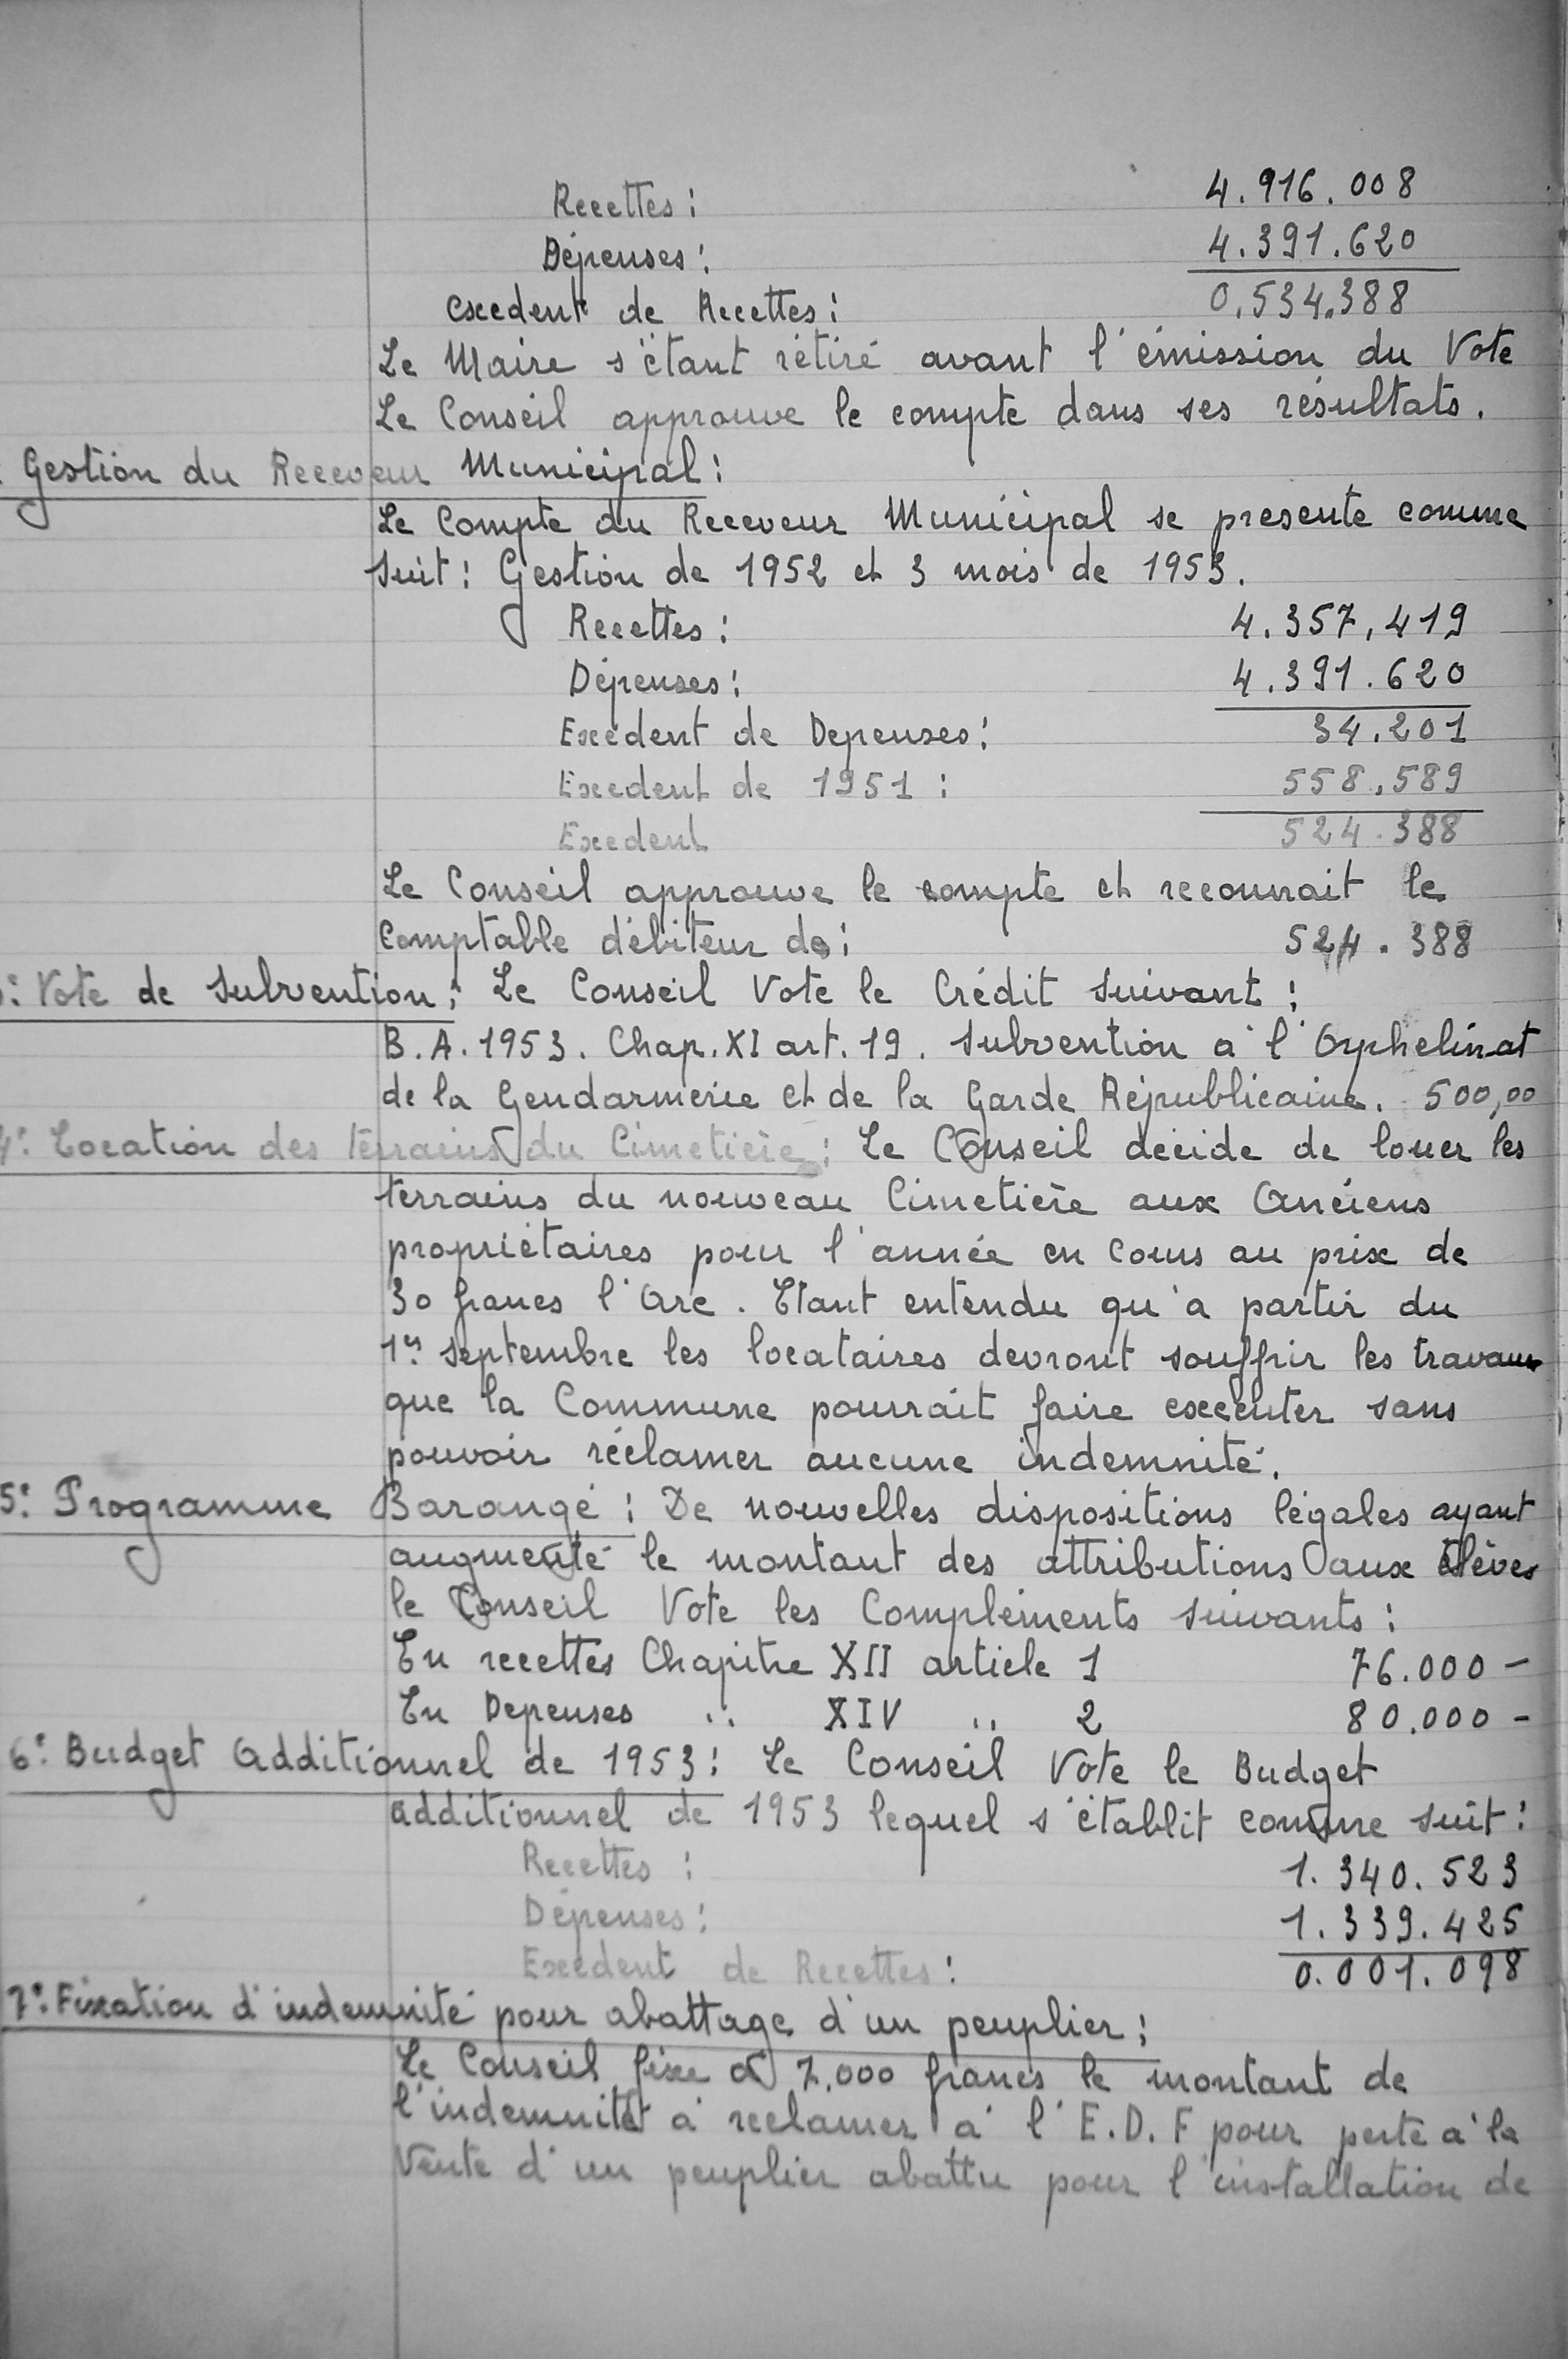 Recettes : 4.916.008
Dépenses : 4.391.620
Excedent de Recettes : 0.534.388
Le Maire s'étant rétiré avant l'émission du Vote
Le Conseil approuve le compte dans ses résultats.
Gestion du Receveur Municipal :
Le Compte du Receveur Municipal se présente comme
suit : Gestion de 1952 et 3 mois de 1953.
Recettes : 4.357.419
Dépenses : 4.391.620
Excédent de Depenses : 34.201
Excedent de 1951 : 558.589
Excedent 524.388
Le Conseil approuve le compte et reconnait le
Comptable débiteur de : 524.388
: Vote de Subvention : Le Conseil Vote le Crédit Suivant :
B.A. 1953. Chap. XI art. 19. Subvention à l'Orphelinat
de la Gendarmerie et de la Garde Républicaine. 500,00
4° Location des Terrains du Cimetière : Le Conseil décide de louer les
terrains du nouveau Cimetière aux Anciens
propriétaires pour l'année en cours au prix de
30 francs l'Are. Etant entendu qu'a partir du
1er Septembre les locataires devront souffrir les travaux
que la Commune pourrait faire executer sans
pouvoir réclamer aucune indemnité.
5° Programme Barangé : De nouvelles dispositions légales ayant
augmenté le montant des attributions aux élèves
le Conseil Vote les Compléments suivants :
En recettes Chapitre XII article 1 76.000 -
En Depenses " XIV " 2 80.000 -
6° Budget Additionnel de 1953 : Le Conseil Vote le Budget
additionnel de 1953 lequel s'établit comme suit :
Recettes : 1.340.523
Dépenses : 1.339.425
Excédent de Recettes : 0.001.098
7° Fixation d'indemnité pour abattage d'un peuplier :
Le Conseil fixe à 7.000 francs le montant de
l'indemnité à reclamer à l'E.D.F pour perte à la
Vente d'un peuplier abattu pour l'installation de